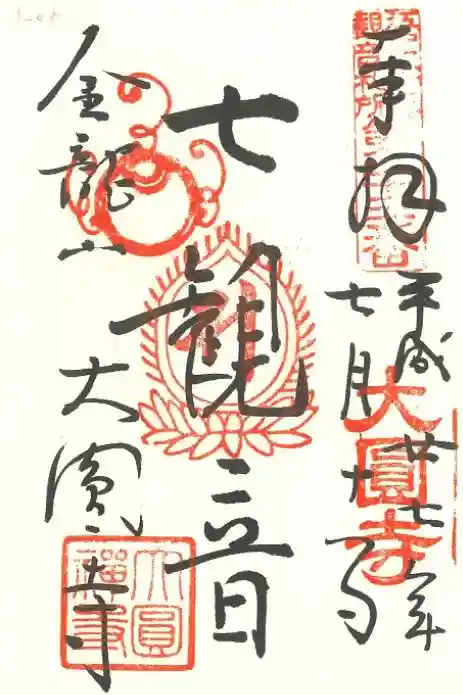 奉拜
平成廿七年
七月十日
大圓寺
七觀音
金龍山
大圓寺
大圓
禪寺